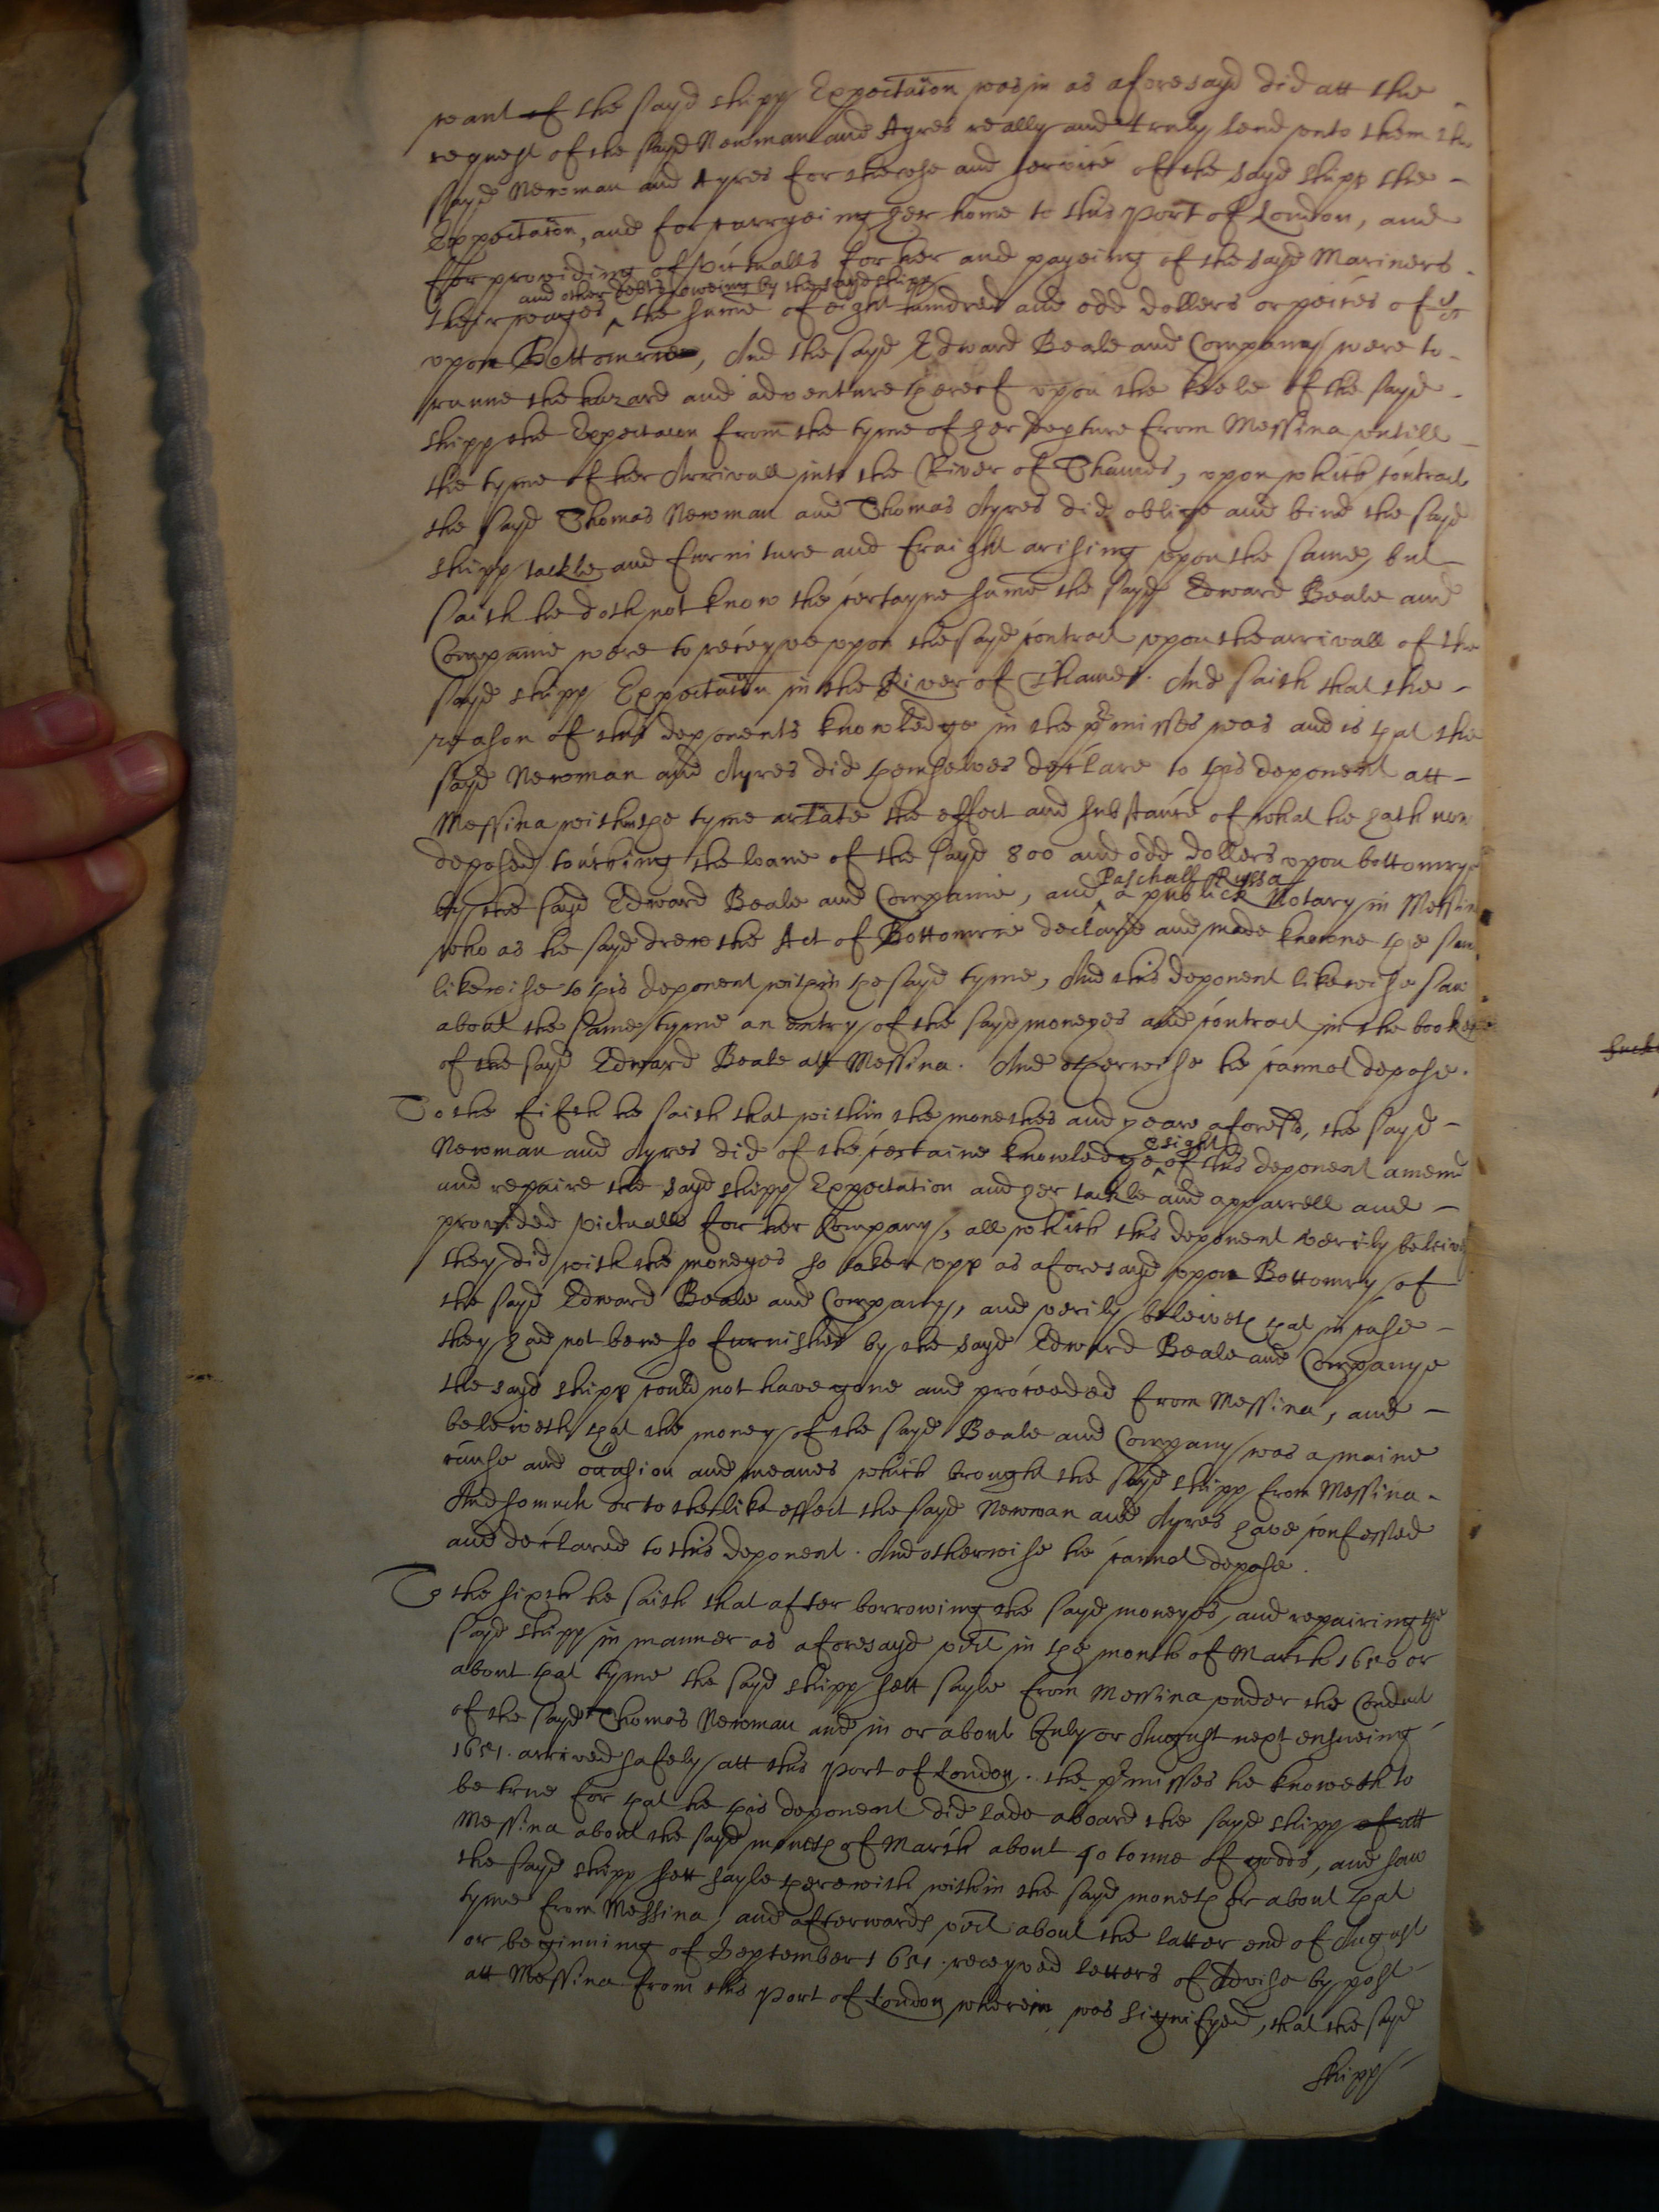 want of the sayd shipp Expectac̄on was in as aforesayd did att the
request of the sayd Newman and Ayres really and truly lend unto them the
sayd Newman and Ayres for the use and service of the sayd shipp the
Expectac̄on, and for carryeing her home to this Port of London, and
ffor provideing of victualls for her and payeing of the sayd Mariners
and other debts oweing by the sayd shipp
their wages ^ the summe of eight hundred and odd dollers or peeces of 8/8
upon Bottomrie, And the sayd Edward Beale and Company were to
runne the hazard and adventure thereof upon the keele of the sayd
shipp the Expectacon from the tyme of her depture from Messina untill
the tyme of her Arrivall into the River of Thames, upon which contract
the sayd Thomas Newman and Thomas Ayres did oblige and bind the sayd
shipp tackle and furniture and fraight arising upon the same, but
saith he doth not know the certayne summe the sayd Edward Beale and
Companie were to receyve upon the sayd contract upon the arrivall of the
sayd shipp Expectac̄on in the River of Thames. And saith that the
reason of this deponents knowledge in the p̄misses was and is that the
sayd Newman and Ayres did themselves declare to this deponent att
Messina within the tyme arlate the effect and substance of what he hath now
deposed touching the loane of the sayd 800 and odd dollers upon bottomrye
Paschall Russa
by the sayd Edward Beale and Companie, and ^ a publick Notary in Messina
who as he sayd drew the Act of Bottomrie declared and made knowne the same
likewise to this deponent within the sayd tyme, And this deponent likewise saw
about the same tyme an entry of the sayd moneyes and contract in the bookes
of the sayd Edward Beale att Messina. And otherwise he cannot depose.
To the fifth he saith that within the monethes and yeare aforesd, the sayd
Newman and Ayres did of the certaine knowledge
& sight
^ of this deponent amend
and repaire the sayd shipp Expectation and her tackle and apparrell and
provided victualls for her Company, all which this deponent verily beleives
they did with the moneyes so taken upp as aforesayd upon Bottomry of
the sayd Edward Beale and Company, and verily beleiveth that in case
they had not bene so furnished by the sayd Edward Beale and Companye
the sayd shipp could not have gone and proceeded from Messina, and
beleiveth that the money of the sayd Beale and Company was a maine
cause and occasion and meanes which brought the sayd shipp from Messina.
And so much or to the like effect the sayd Newman and Ayres have confessed
and declared to this deponent. And otherwise he cannot depose.
To the sixth he saith that after borrowing the sayd moneyes, and repairing the
sayd shipp in manner as aforesayd vizt in the month of March 1650 or
about that tyme the sayd shipp sett sayle from Messina under the Conduct
of the sayd Thomas Newman and in or about July or August next ensueing
1651. arrived safely att this Port of London. the p̄misses he knoweth to
be true for that he this deponent did lade aboard the sayd shipp of att
Messina about the sayd moneth of March about 40 tonne of goods, and saw
the sayd shipp sett sayle therewith within the sayd moneth or about that
tyme from Messina, and afterwards vizt about the latter end of August
or beginning of September 1651. receyved letters of Advise by post
att Messina from this Port of London wherein was signifyed, that the sayd
shipp